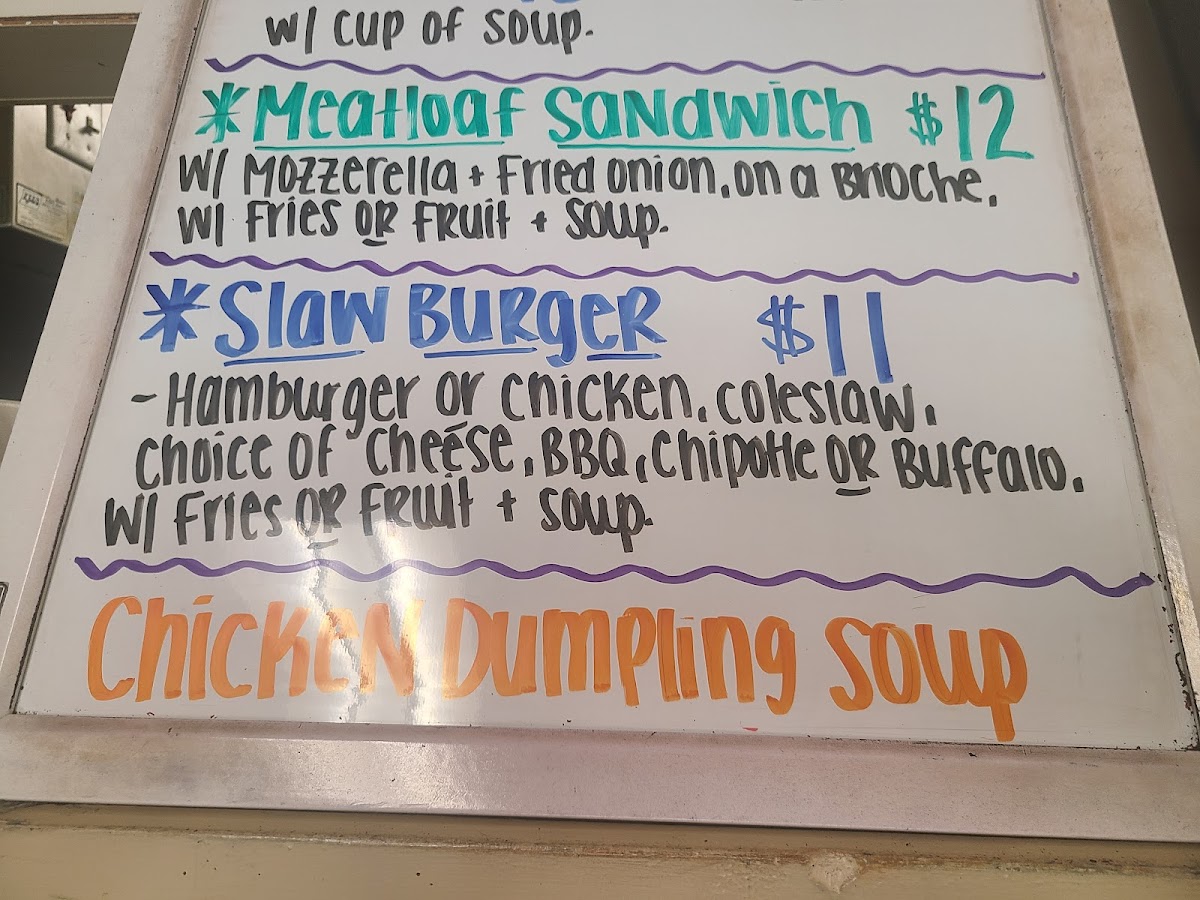 w/ cup of soup.
*Meatloaf Sandwich $12
w/ Mozzerella + Fried onion, on a Brioche,
w/ Fries or Fruit + Soup.
*Slaw Burger $11
- Hamburger or chicken, coleslaw,
choice of cheese, BBQ, Chipotle or Buffalo.
w/ Fries or Fruit + soup.
Chicken Dumpling Soup